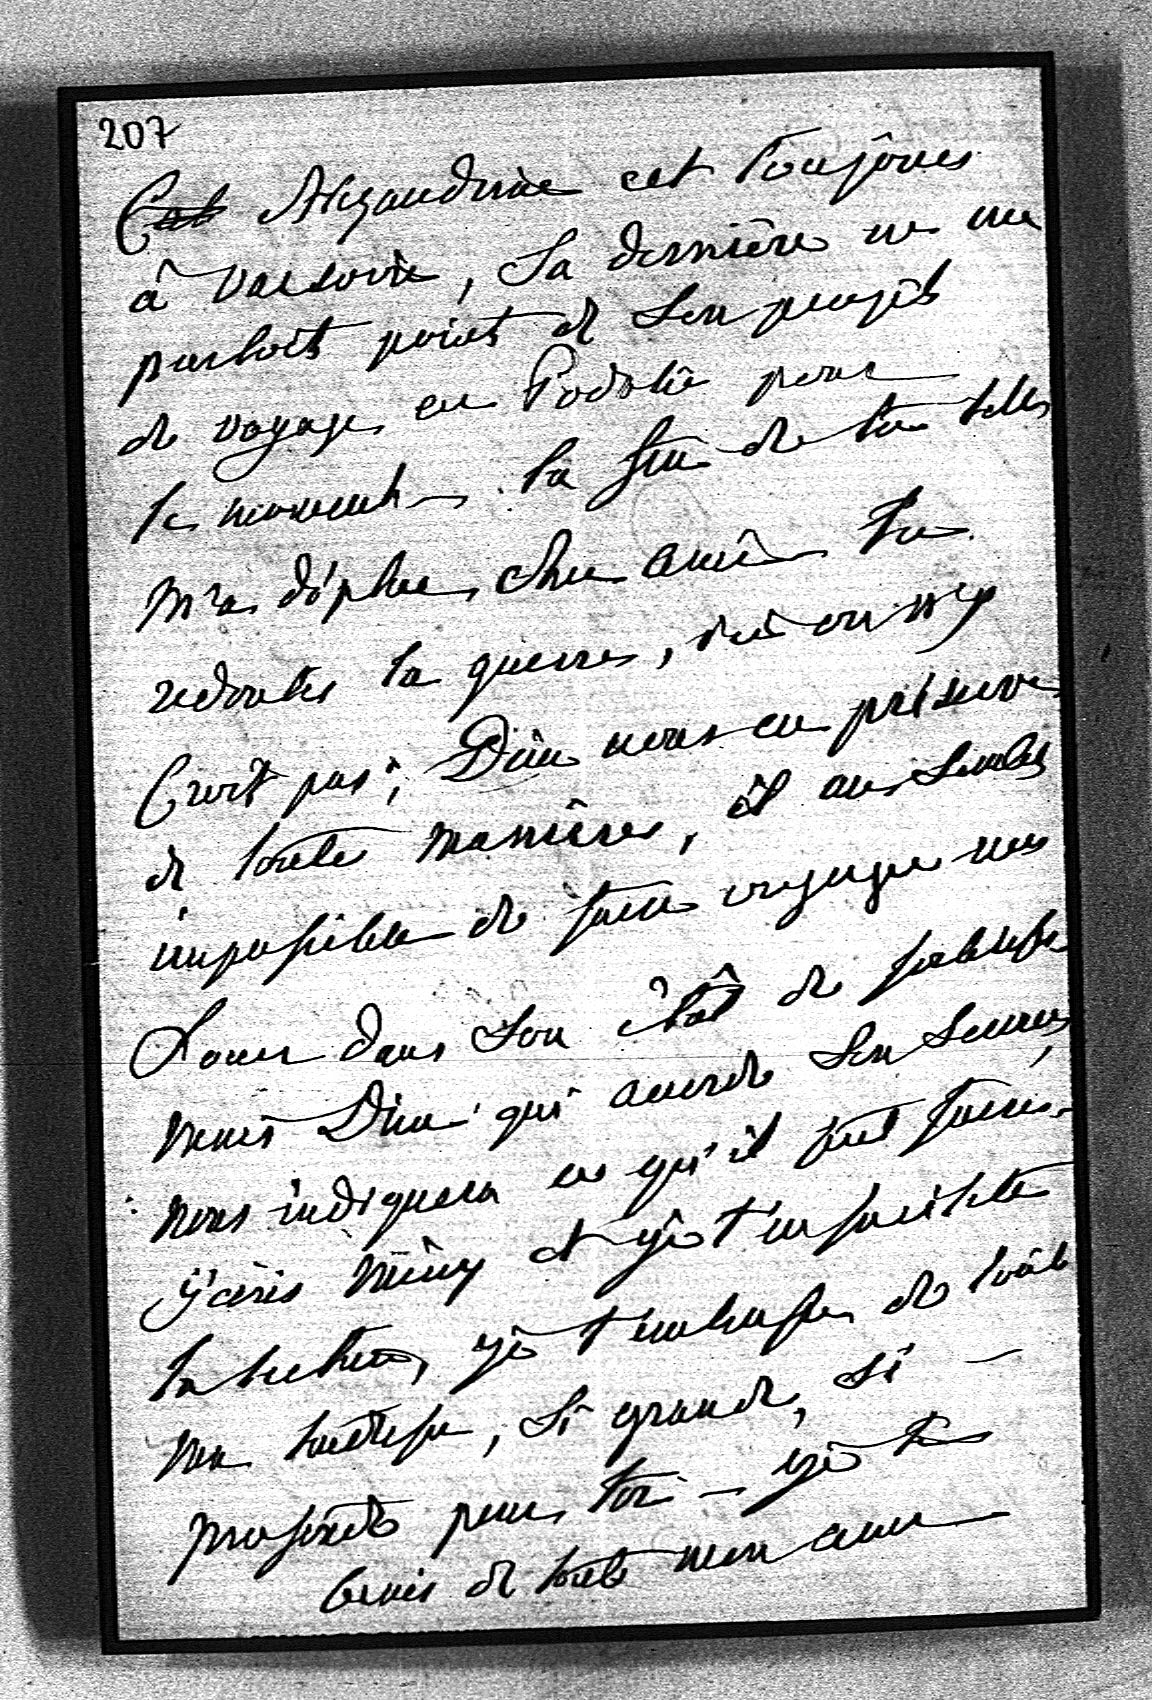 207
Cet Alexandrine est toujours
à Varsovie, sa dernière ne me
parloit point de son projet
de voyage en Podolie pour
le moment. la fin de ta lettre
m'a déplue, chère amie tu
redoutes la guerre, ici on n'y
croit pas; Dieu nous en préserve
de toute manière, il me semble
impossible de faire voyager ma
soeur dans son état de foiblesse
mais Dieu qui accorde son secours,
nous indiquera ce qu'il faut faire.
j'écris et je t'en
la lettre, je t'embrasse de toute
ma tendresse, si grande, si
profonde pour toi — je te
bénis de toute mon ame